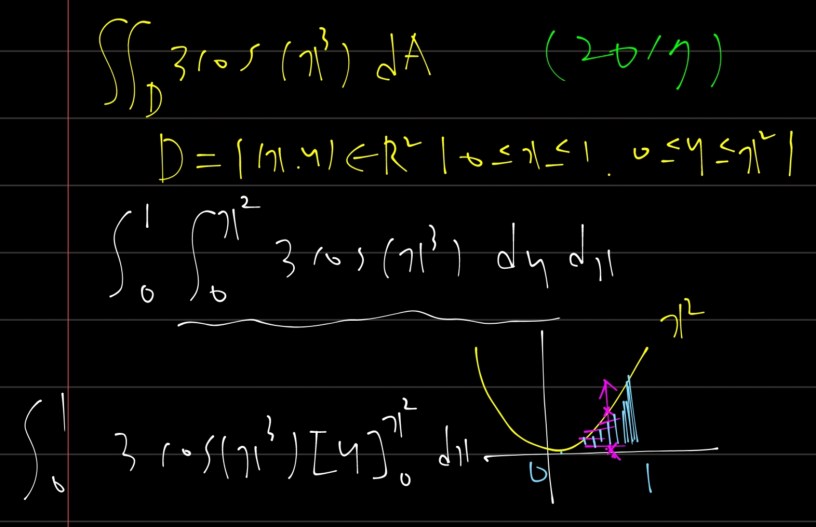 ∬_D 3cos(x³) dA (2019)
D = {(x,y) ∈ R² | 0 ≤ x ≤ 1, 0 ≤ y ≤ x²}
∫₀¹ ∫₀^{x²} 3cos(x³) dy dx
x²
∫₀¹ 3cos(x³) [y]₀^{x²} dx
0 1